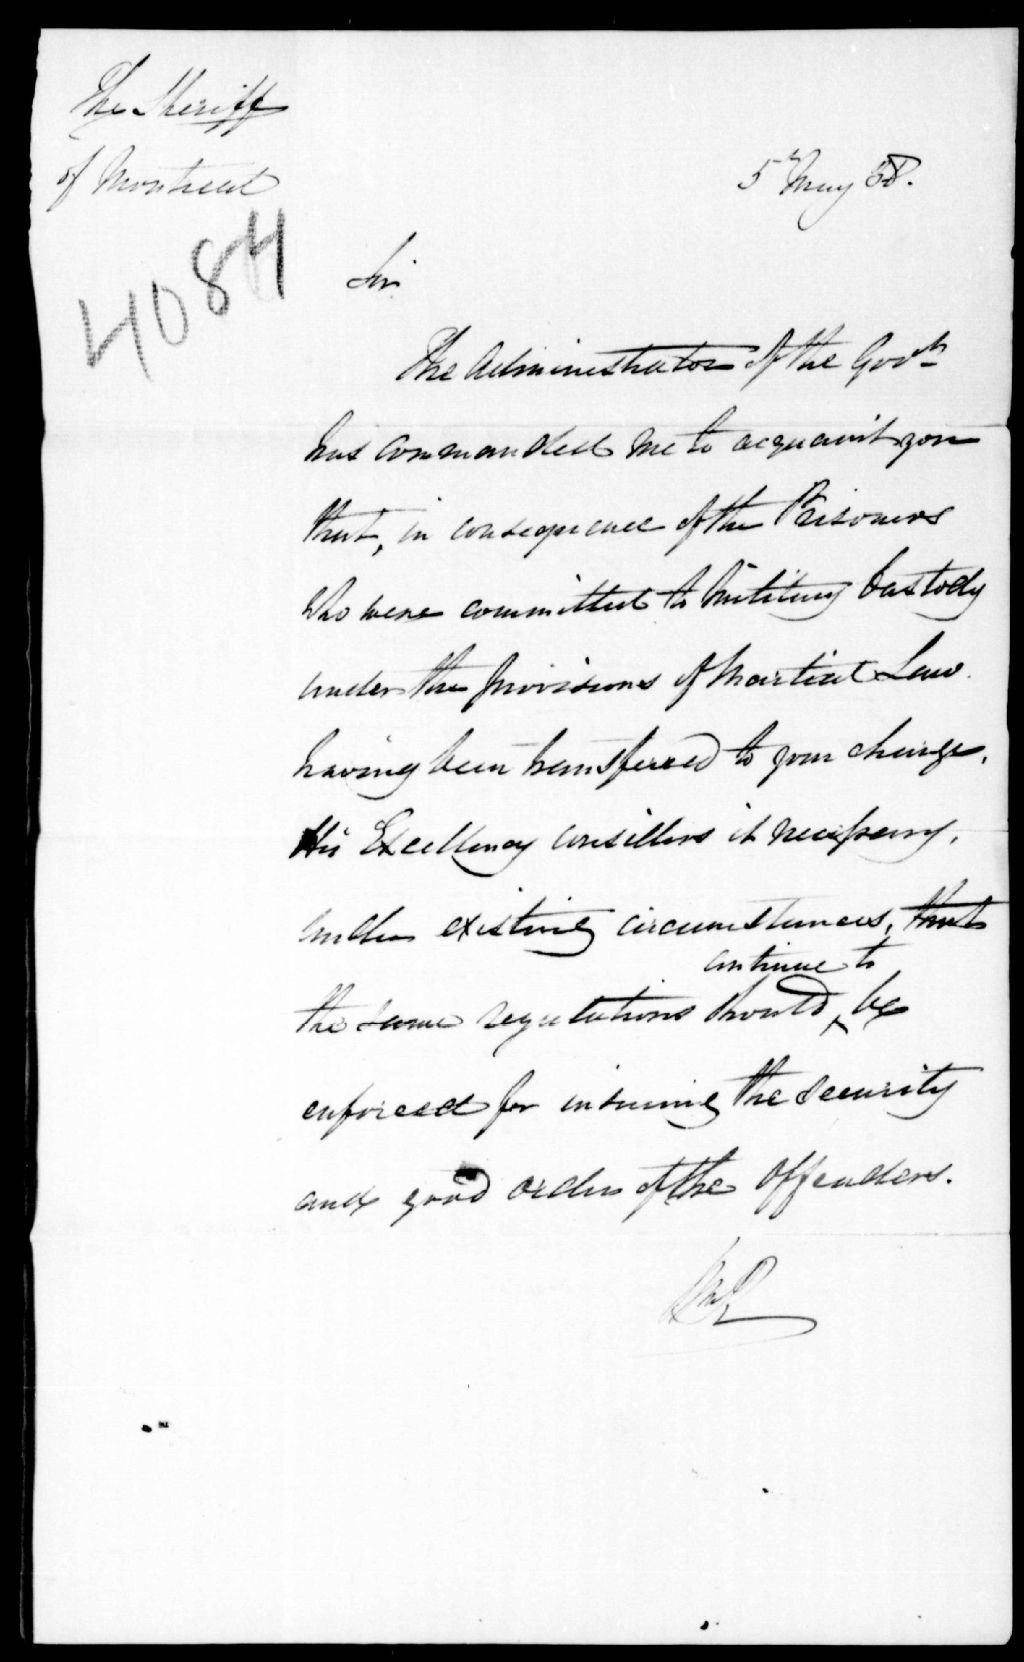 The Sheriff
of Montreal
5th May 38.
4084
Sir
The Administrator of the Govt
has commanded me to acquaint you
that, in consequence of the Prisoners
who were committed to Military Custody
under the provisions of Martial Law
having been transferred to your charge,
His Excellency considers it necessary,
under existing circumstances, that
continue to
the same regulations should ^ be
enforced for insuring the security
and good order of the Offenders.